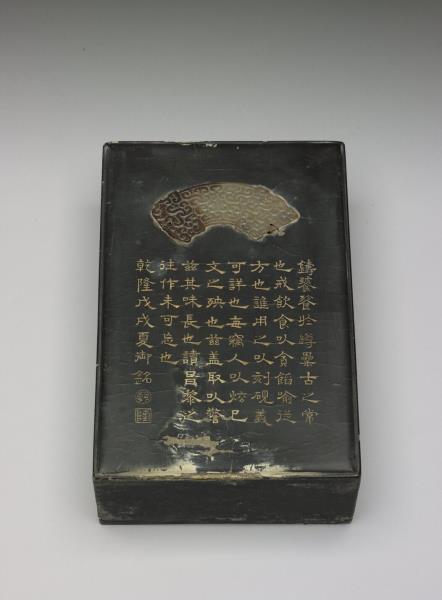 鑄饕餮於尊罍古之常
也戒飲食以貪餡喻從
方也誰用之以刻硯義
可詳也每竊人以炫己
文之殃也茲蓋取以警
茲其味長也讀昌黎之
往作未可忘也
乾隆戊戌夏御銘